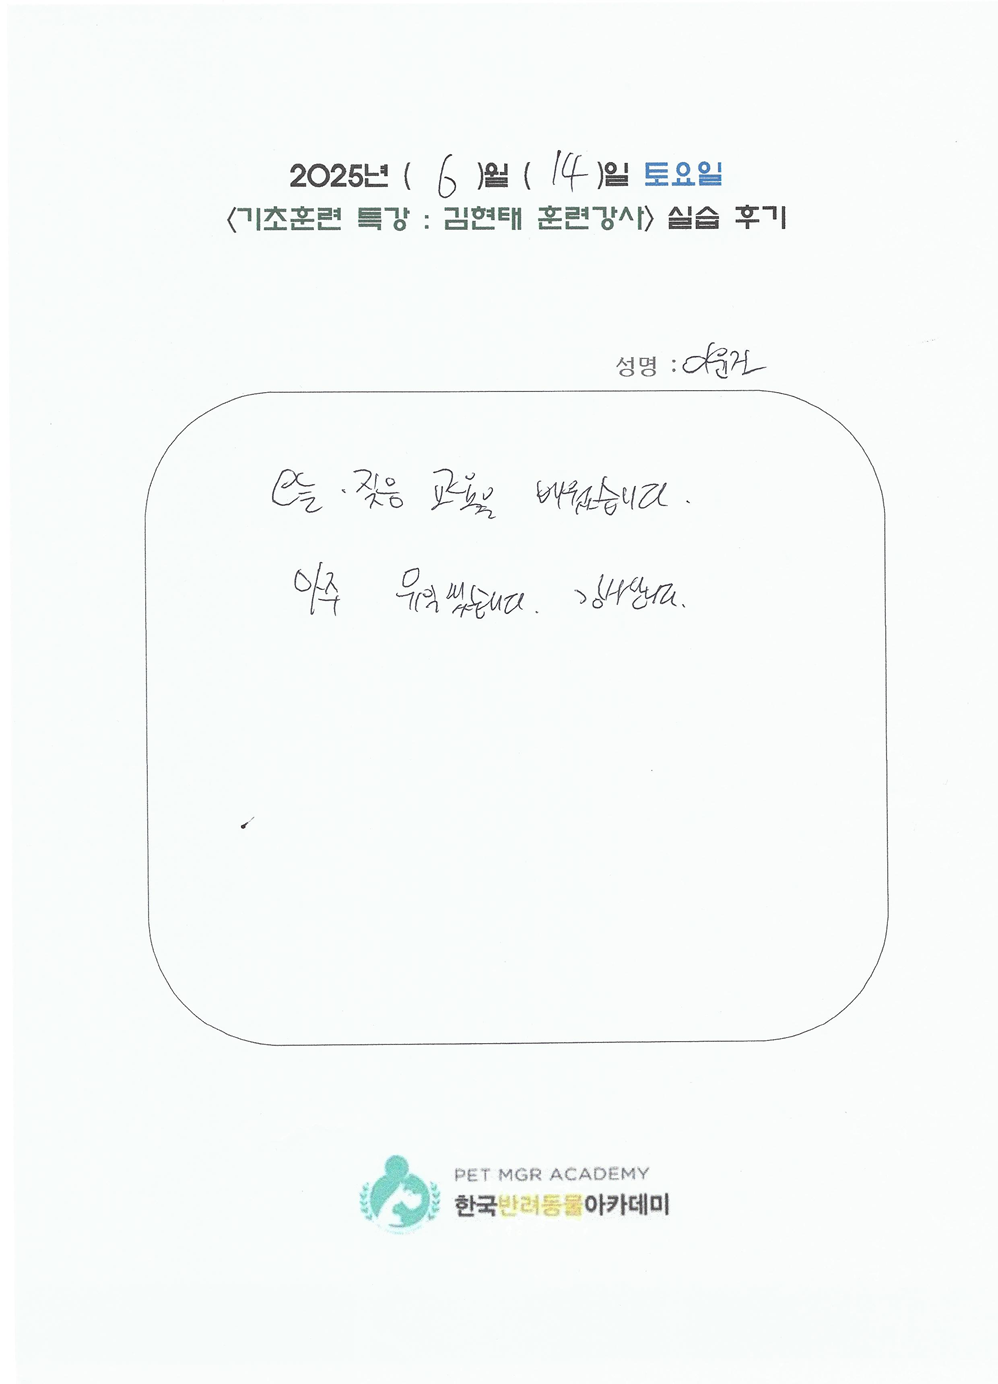 2025년 ( 6 )월 ( 14 )일 토요일
<기초훈련 특강 : 김현태 훈련강사> 실습 후기
성명 : 이윤건
오늘 . 짖음 교육을 배웠습니다.
아주 유익했습니다. 감사합니다.
PET MGR ACADEMY
한국반려동물아카데미